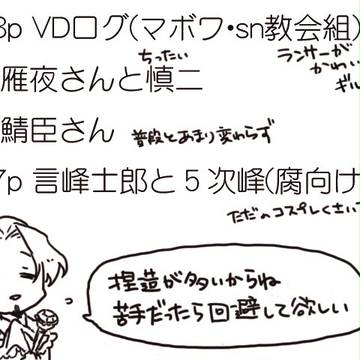 3p VDログ(マボワ・sn教会組)
ランサーが
かわいい
ギル
ちったい
雁夜さんと慎二
鯖臣さん 普段とあまり変わらず
7p 言峰士郎と5次峰(腐向け
ただのコスプレくさい
捏造が多いからね
苦手だったら回避して欲しい